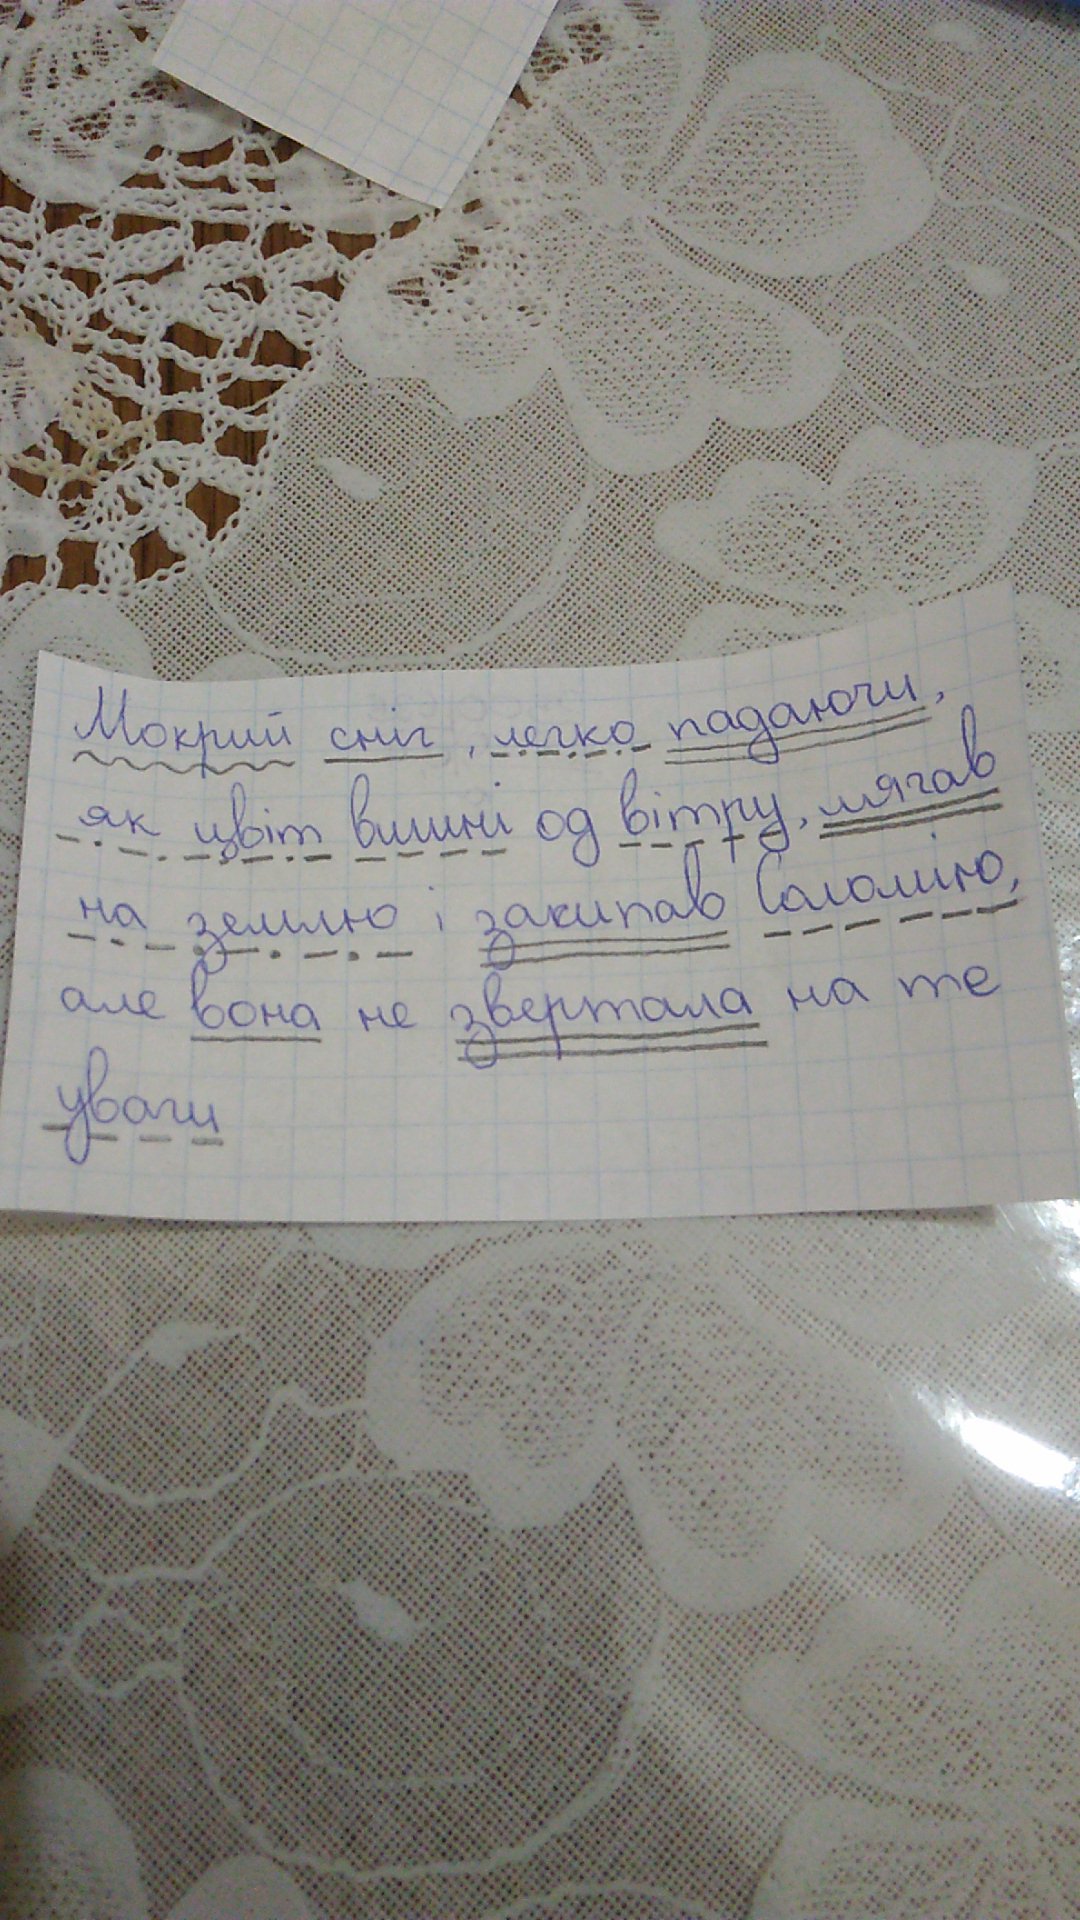 Мокрий сніг, легко падаючи,
як цвіт вишні од вітру, лягав
на землю і закипав Соломію,
але вона не звертала на те
уваги